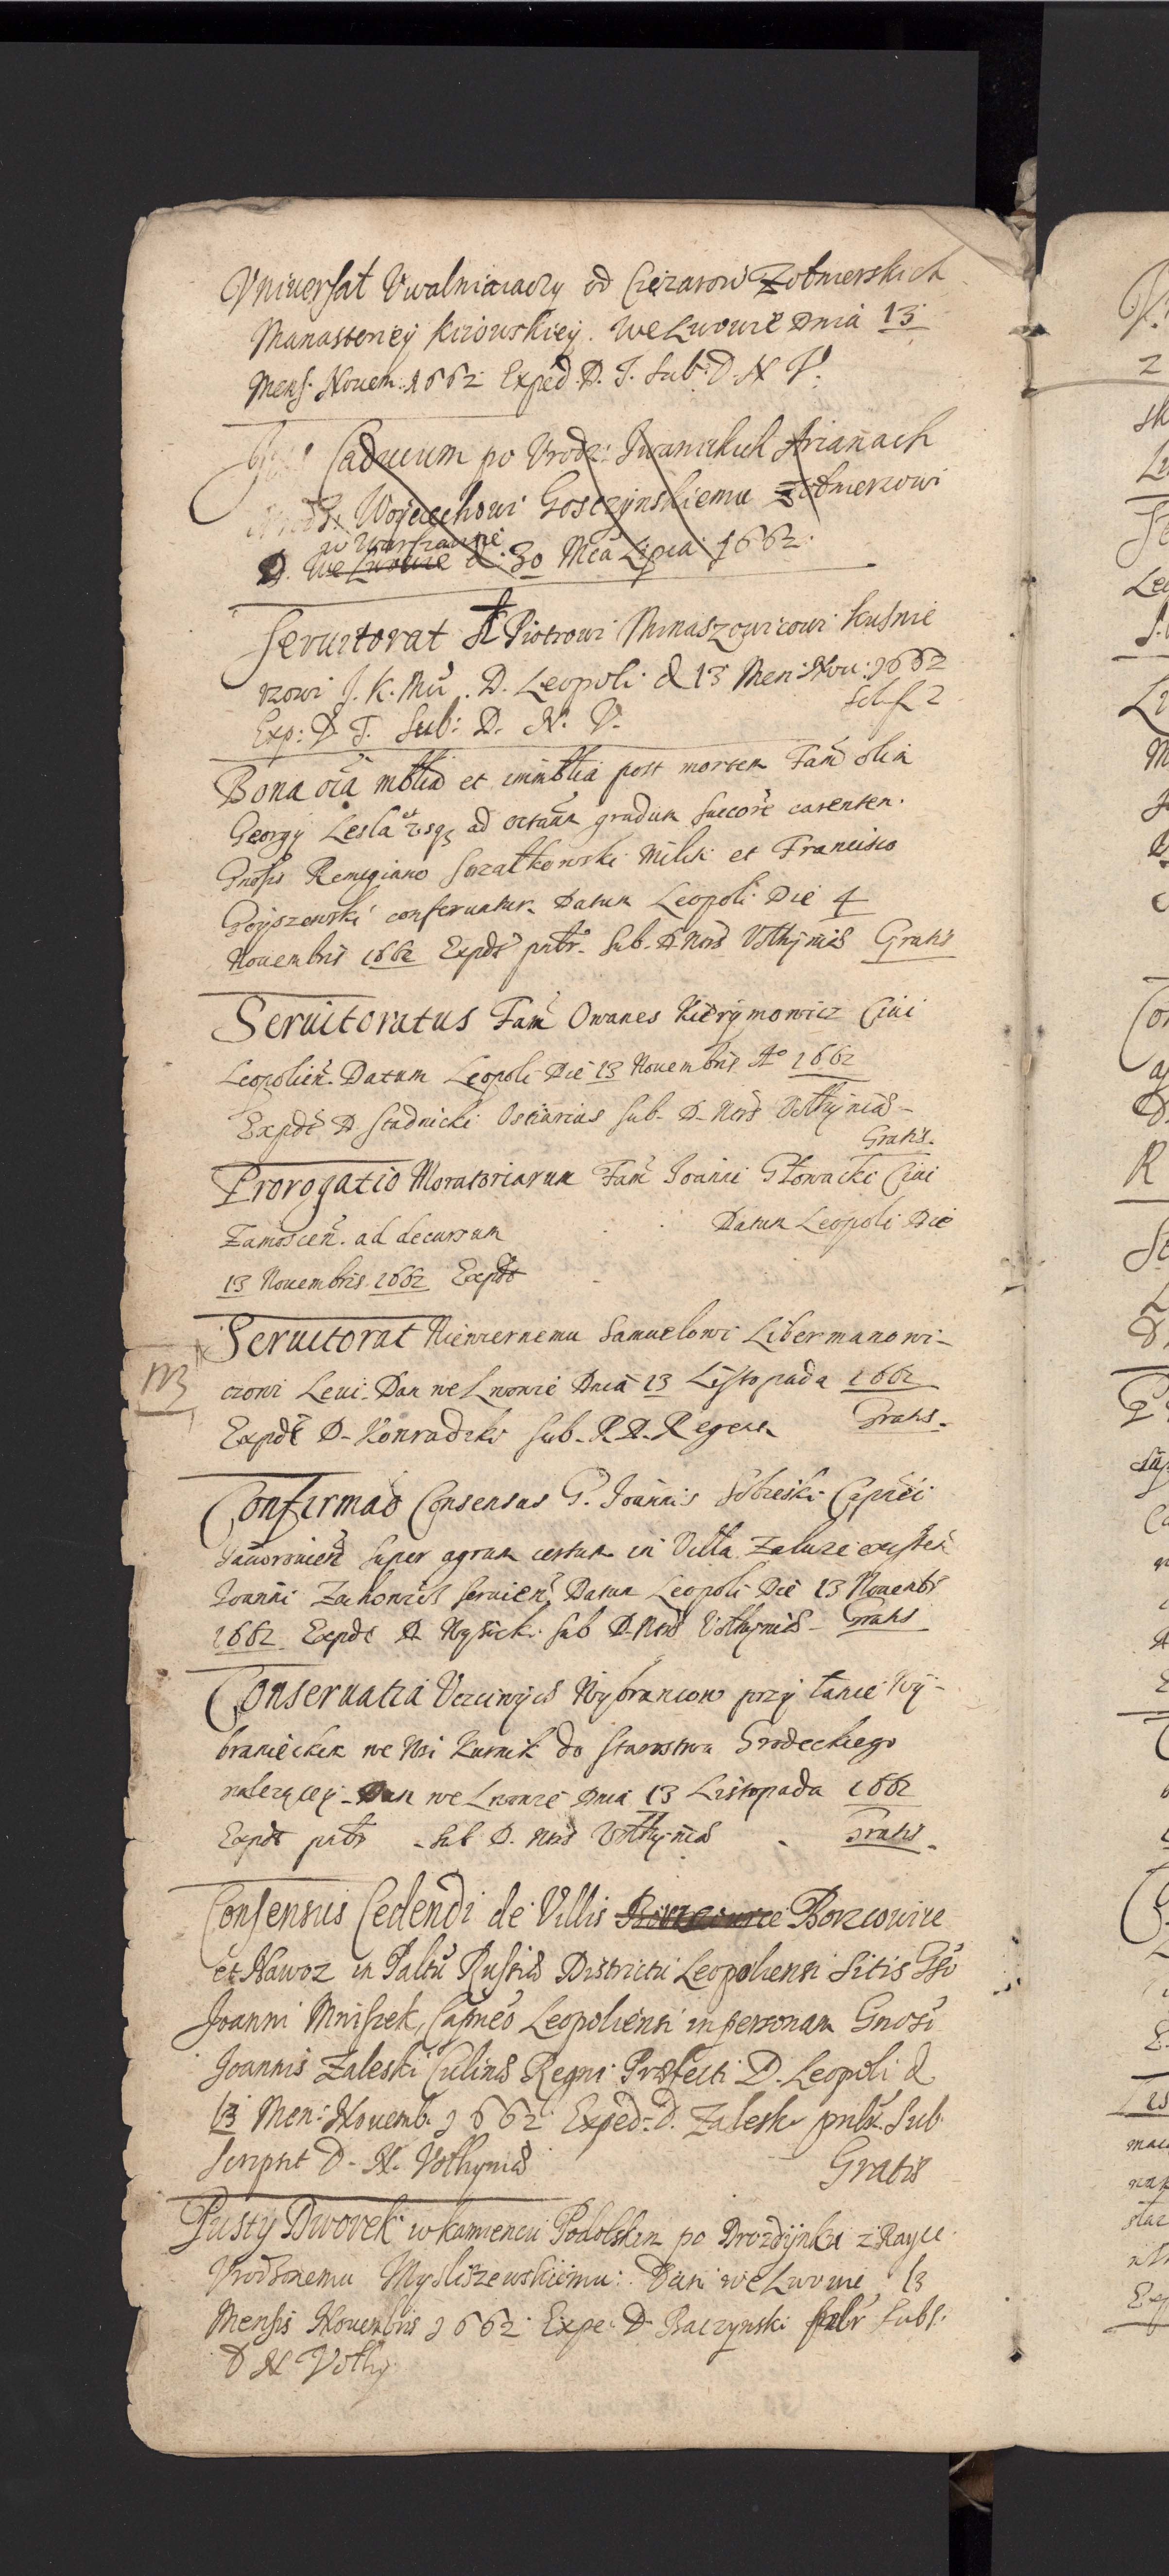 Vniuersał Vwalniaiaczy od Ciężarow Żołnierskich
Manasterzej Kiiowskiey. We Lwowie Dnia 13
Mens. Nouem: 1662 Exped. D. T. Sub: D. N V.
Caducum po Vrodz: Iwanickich Arianach
Woyciechowi Gosczynskiemu Żołnierzowi
w Warszawie
D. We Lwowie d. 30 Mca Lipca 1662.
Seruitorat Piotrowi Minaszowicowi Kusnie
rzowi J. K. Mci. D. Leopoli d 13 Men: Nou: 1662
Exp: D. T. Sub: D. N. V.
Bona oia mblia et immblia post mortem Fam olim
Georgy Lesla vsq ad octaum gradum succore carenten.
Gnosis Remigiano Strzałkowski Milit et Francisco
conferuntur. Datum Leopoli Die 4
Nouembris 1662 Expdt pntr. Sub. D. Nors Volhyniæ Gratis
Seruitoratus Fam Owanes Kierymowicz Ciui
Leopolien. Datum Leopoli Die 13 Nouembris Ao 1662
Expdt D Stadnicki Ostiarius Sub. D. Nors Volhyniæ -
Gratis.
Prorogatio Moratoriarum Fam Joanni Głowacki Ciui
Zamoscien. ad decursum Datum Leopoli Die
13 Nouembris 1662 Expdt
Seruitorat Niewiernemu Samuelowi Libermanowi-
czowi Leui. Dan we Lwowie Dnia 13 Listopada 1662
Expdt D. Konradzki Sub. R. D. Regens Gratis.
Confirmao Consensus G. Joannis Sobieski Capnei
Jauorouien super agrum certum in Villa Zaluze existen
Joanni Zachowicz seruien. Datum Leopoli Die 13 Nouembr
1662 Expdt D Wysicki Sub D. Nors Volhyniæ Gratis
Conseruatia Vczciwych Wybrancow przy łanie Wy-
branieckim we Wsi Kurnik do Starostwa Grodeckiego
należącey. Dan we Lwowie Dnia 13 Listopada 1662
Expdt pntr Sub D. Nors Volhyniæ Gratis.
Consensus Cedendi de Villis Borzcowice Borzcowice
et Nawoz in Paltu Russiæ Districtu Leopoliensi Sitis Gso
Joanni Mniszek, Capneo Leopoliensi in personam Gnosi
Joannis Zaleski Culinæ Regni Præfecti D. Leopoli d
13 Men: Nouemb. 1662 Exped. D. Zaleski pntr. Sub
scripsit D. N. Volhyniæ Gratis
Pusty Dworek w Kamiencu Podolskim po Drozdynku z Rayce
Vrodzonemu Mysliszewskiemu: Dan we Lwowie 13
Mensis Nouembris 1662 Expe. D. Raczynski Subs.
D N Volhy